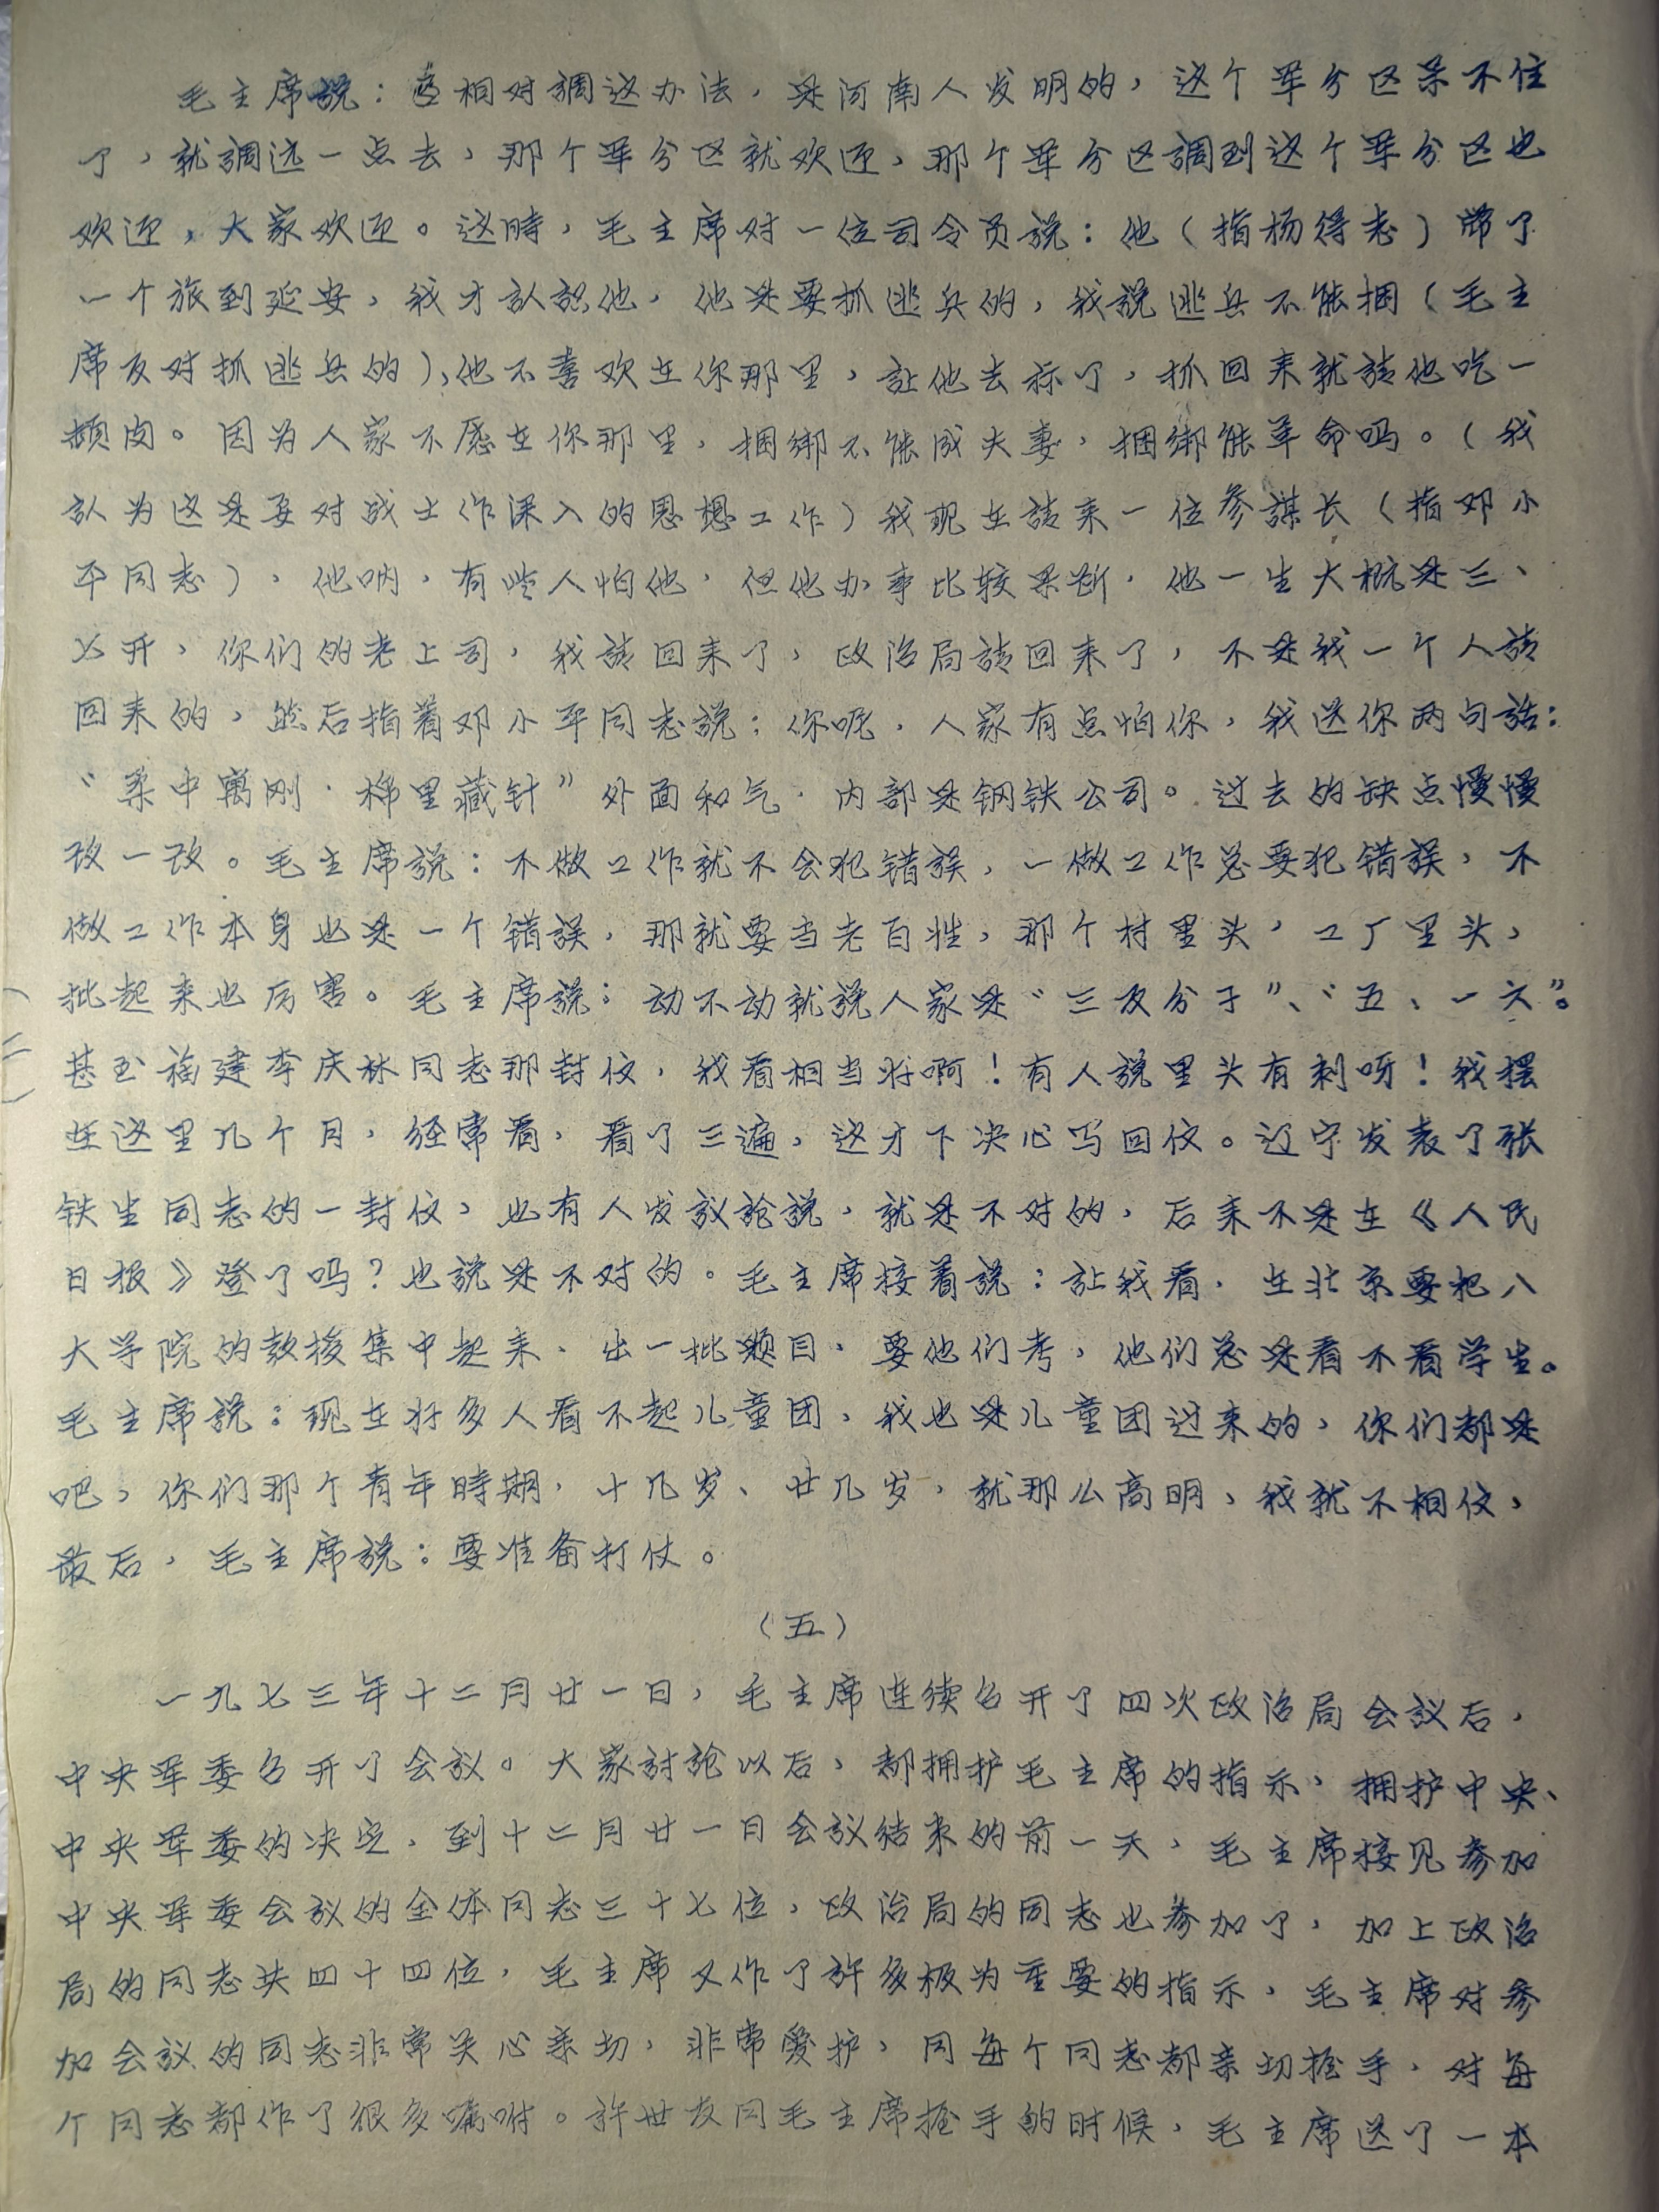 毛主席説：互相对調这办法，是河南人发明的，这个军分区呆不住
了，就調远一点去，那个军分区就欢迎，那个军分区調到这个军分区也
欢迎，大家欢迎。这時，毛主席对一位司令员説：他（指杨得志）带了
一个旅到延安，我才認識他，他是要抓逃兵的，我説逃兵不能捆（毛主
席反对抓逃兵的），他不喜欢在你那里，讓他去标了，抓回来就請他吃一
頓肉。因为人家不愿在你那里，捆绑不能成夫妻，捆绑能革命吗。（我
認为这是要对战士作深入的思想工作）我现在請来一位参謀长（指邓小
平同志），他呐，有些人怕他，但他办事比较果断，他一生大概是三、
七开，你们的老上司，我請回来了，政治局請回来了，不是我一个人請
回来的，然后指着邓小平同志説：你呢，人家有点怕你，我送你两句話：
“柔中寓刚．棉里藏针”外面和气．内部是钢铁公司。过去的缺点慢慢
改一改。毛主席説：不做工作就不会犯错誤，一做工作总要犯错誤，不
做工作本身也是一个错誤，那就要当老百姓，那个村里头，工厂里头，
批起来也厉害。毛主席説：动不动就説人家是“三反分子”、“五、一六”。
甚至福建李庆林同志那封信，我看相当好啊！有人説里头有刺呀！我摆
在这里几个月，经常看，看了三遍，这才下决心写回信。辽宁发表了张
铁生同志的一封信，也有人发議論説，就是不对的，后来不是在《人民
日报》登了吗？也説是不对的。毛主席接着説：讓我看，在北京要把八
大学院的教授集中起来．出一批题目，要他们考，他们总是看不看学生。
毛主席説：现在好多人看不起儿童团，我也是儿童团过来的，你们都是
吧，你们那个青年時期，十几岁、廿几岁，就那么高明，我就不相信，
最后，毛主席説：要准备打仗。
（五）
一九七三年十二月廿一日，毛主席连续召开了四次政治局会議后，
中央军委召开了会議。大家討論以后，都拥护毛主席的指示，拥护中央、
中央军委的决定，到十二月廿一日会議结束的前一天，毛主席接见参加
中央军委会議的全体同志三十七位，政治局的同志也参加了，加上政治
局的同志共四十四位，毛主席又作了許多极为重要的指示，毛主席对参
加会議的同志非常关心亲切，非常爱护，同每个同志都亲切握手，对每
个同志都作了很多嘱咐。許世友同毛主席握手的时候，毛主席送了一本